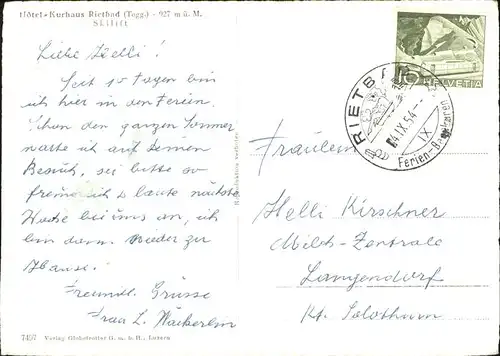 Hôtel-Kurhaus Rietbad (Togg.) - 927 m ü. M.
Skilift
Liebe Helli!
Seit 10 Tagen bin
ich hier in den Ferien.
Schon den ganzen Sommer
warte ich auf deinen
Besuch, sei bitte so
freundlich & läute nächste
Woche bei uns an, ich
bin dann wieder zu
Hause.
Freundl. Grüsse
Frau L. Näckerlin
7497 Verlag Globetrotter G. m. b. H., Luzern
10
HELVETIA
RIETBAD
IX 54
IX
Ferien-
Fräulein
Helli Kirschner
Milch-Zentrale
Langendorf
Kt. Solothurn